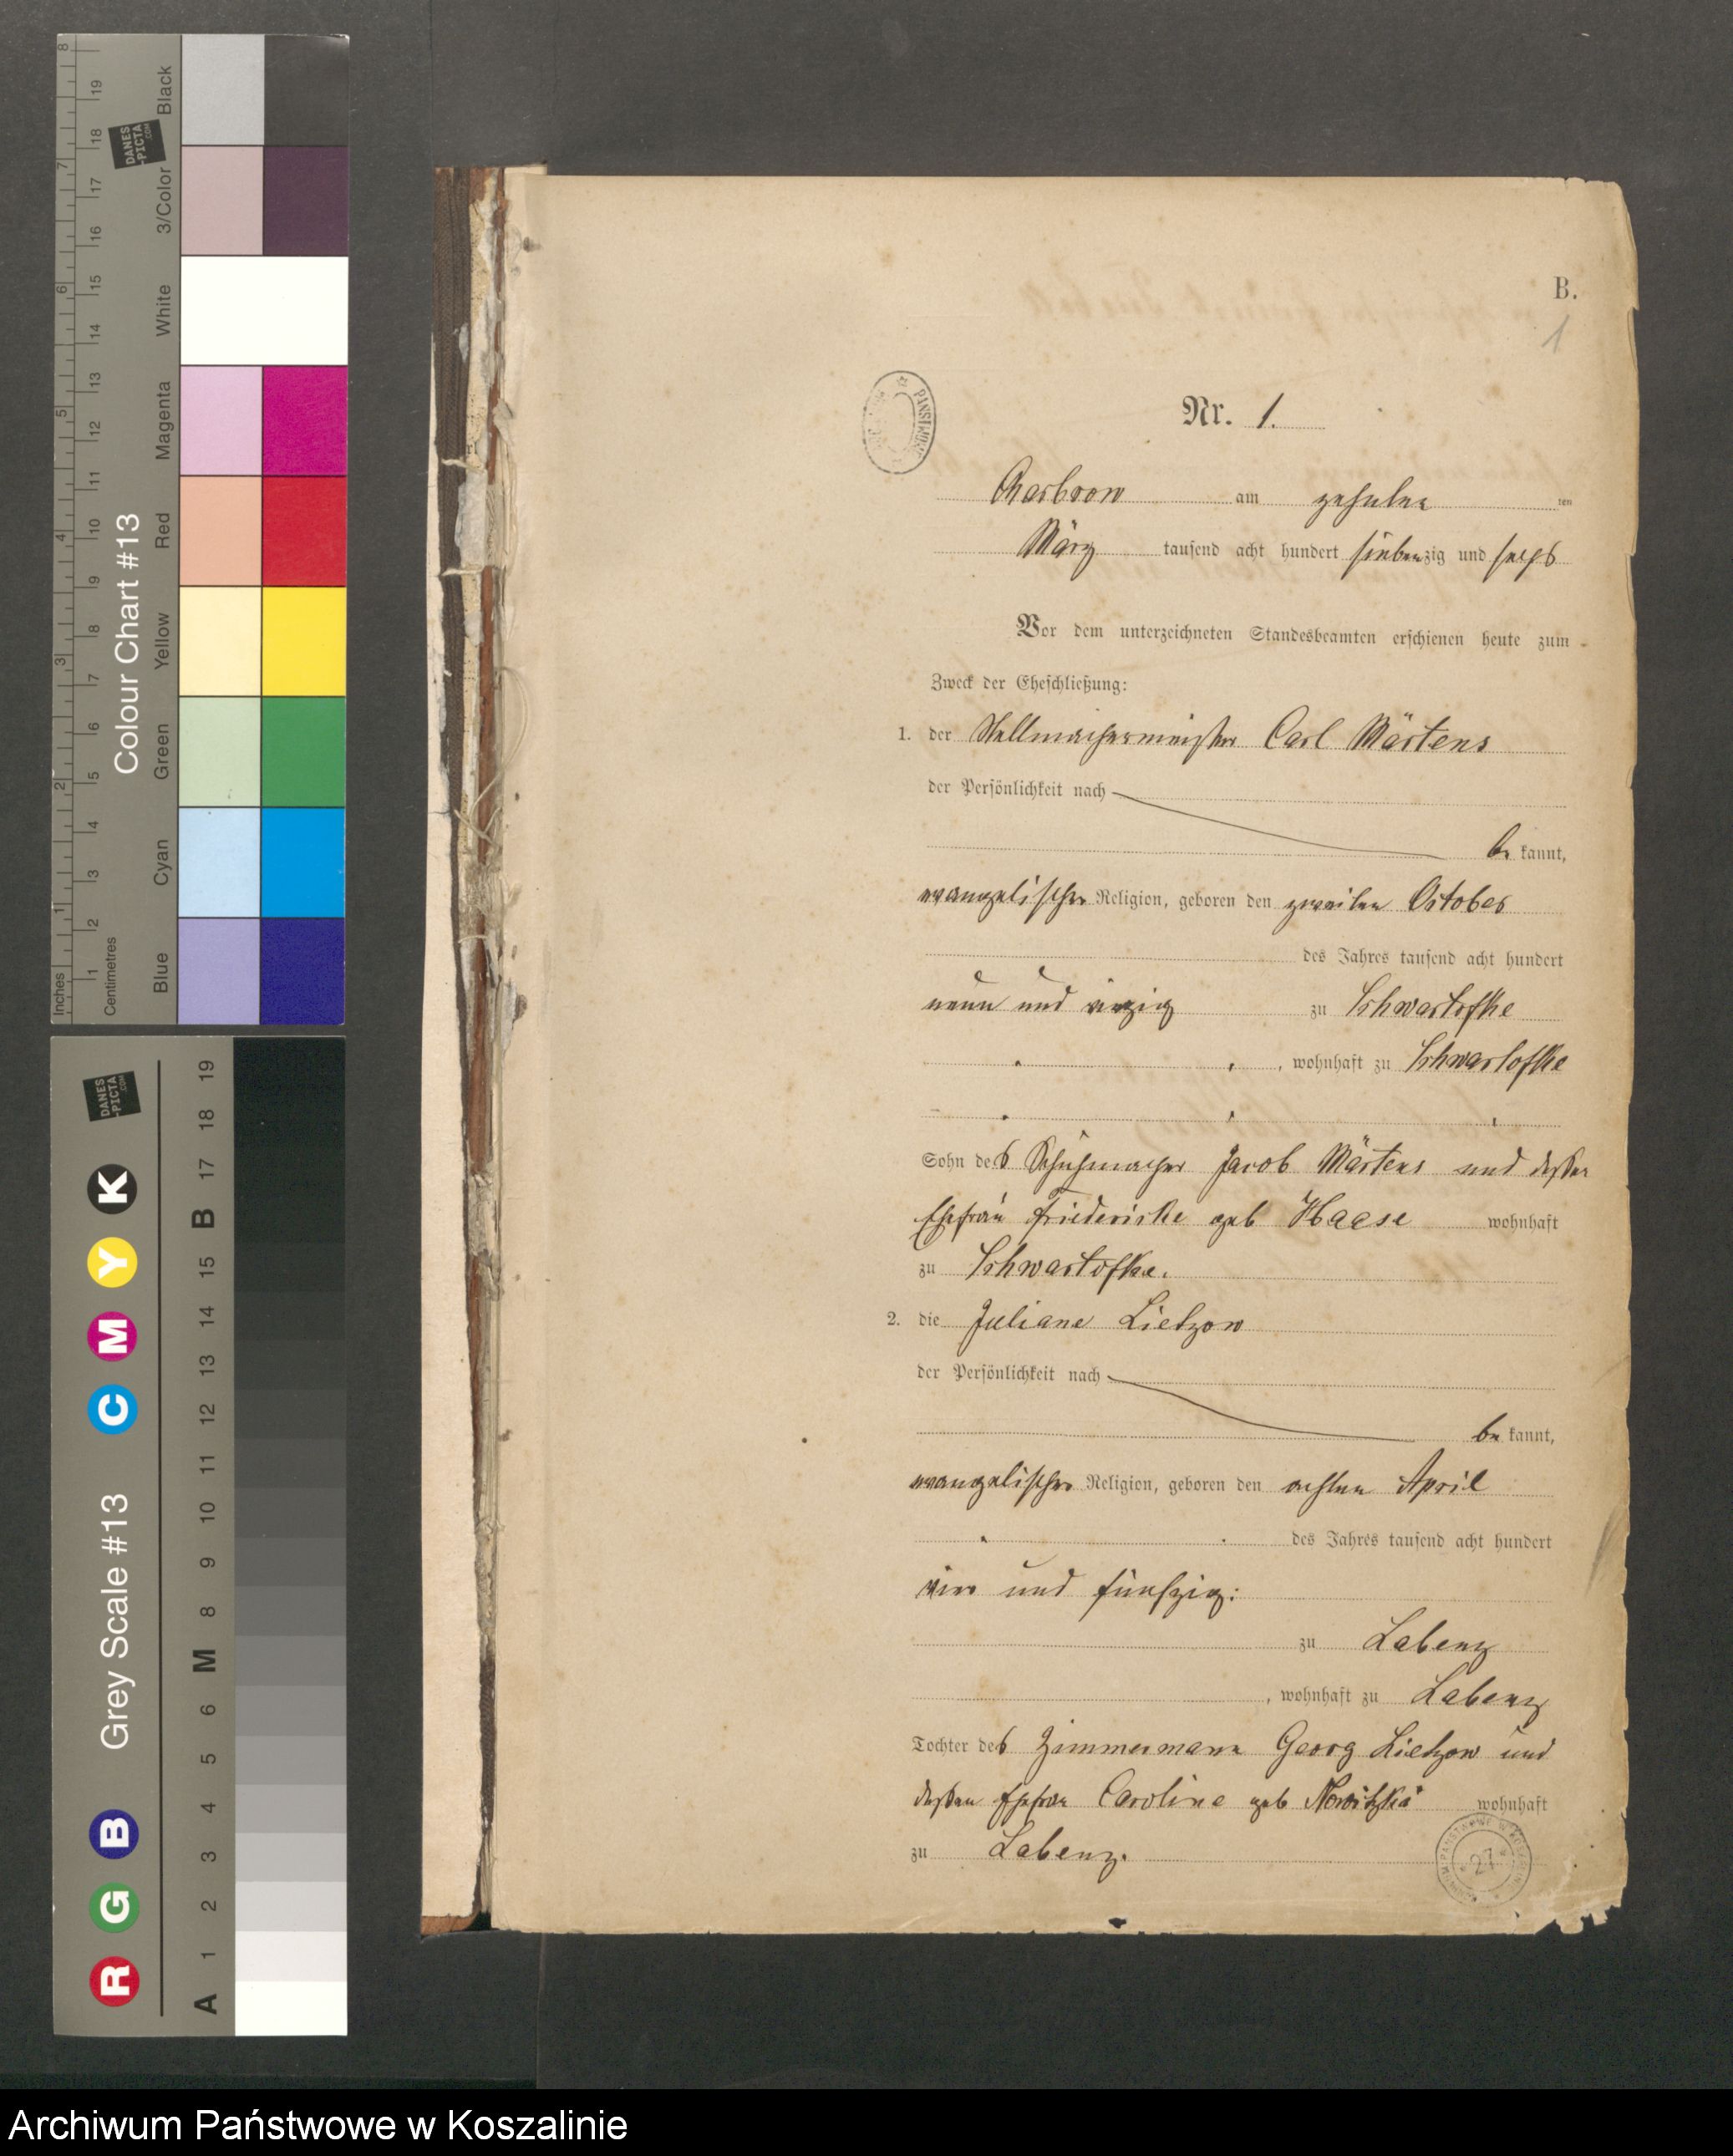 B.
1
Nr. 1.
Charbrow am zehnten ten
März tausend acht hundert siebenzig und sechs
Vor dem unterzeichneten Standesbeamten erschienen heute zum
Zweck der Eheschließung:
1. der Stellmachermeister Carl Märtens
der Persönlichkeit nach
be kannt,
evangelischer Religion, geboren den zweiten October
des Jahres tausend acht hundert
neun und vierzig zu Schwartofke
, wohnhaft zu Schwartofke
Sohn des Schuhmacher Jacob Märtens und dessen
Ehefrau Friedericke geb Haase wohnhaft
zu Schwartofke.
2. die Juliane Lietzow
der Persönlichkeit nach
be kannt,
evangelischer Religion, geboren den achten April
des Jahres tausend acht hundert
vier und fünfzig:
zu Labenz
, wohnhaft zu Labenz
Tochter des Zimmermann Georg Lietzow und
dessen Ehefrau Caroline geb Nowitzki wohnhaft
zu Labenz.
27
PAŃSTWOWE
Colour Chart #13
Blue Cyan Green Yellow Red Magenta White 3/Color Black
Inches 1 2 3 4 5 6 7 8
Centimetres 1 2 3 4 5 6 7 8 9 10 11 12 13 14 15 16 17 18 19
DANES
-PICTA
.COM
Grey Scale #13
R G B C M Y K
A 1 2 3 4 5 6 M 8 9 10 11 12 13 14 15 B 17 18 19
DANES
-PICTA
.COM
Archiwum Państwowe w Koszalinie